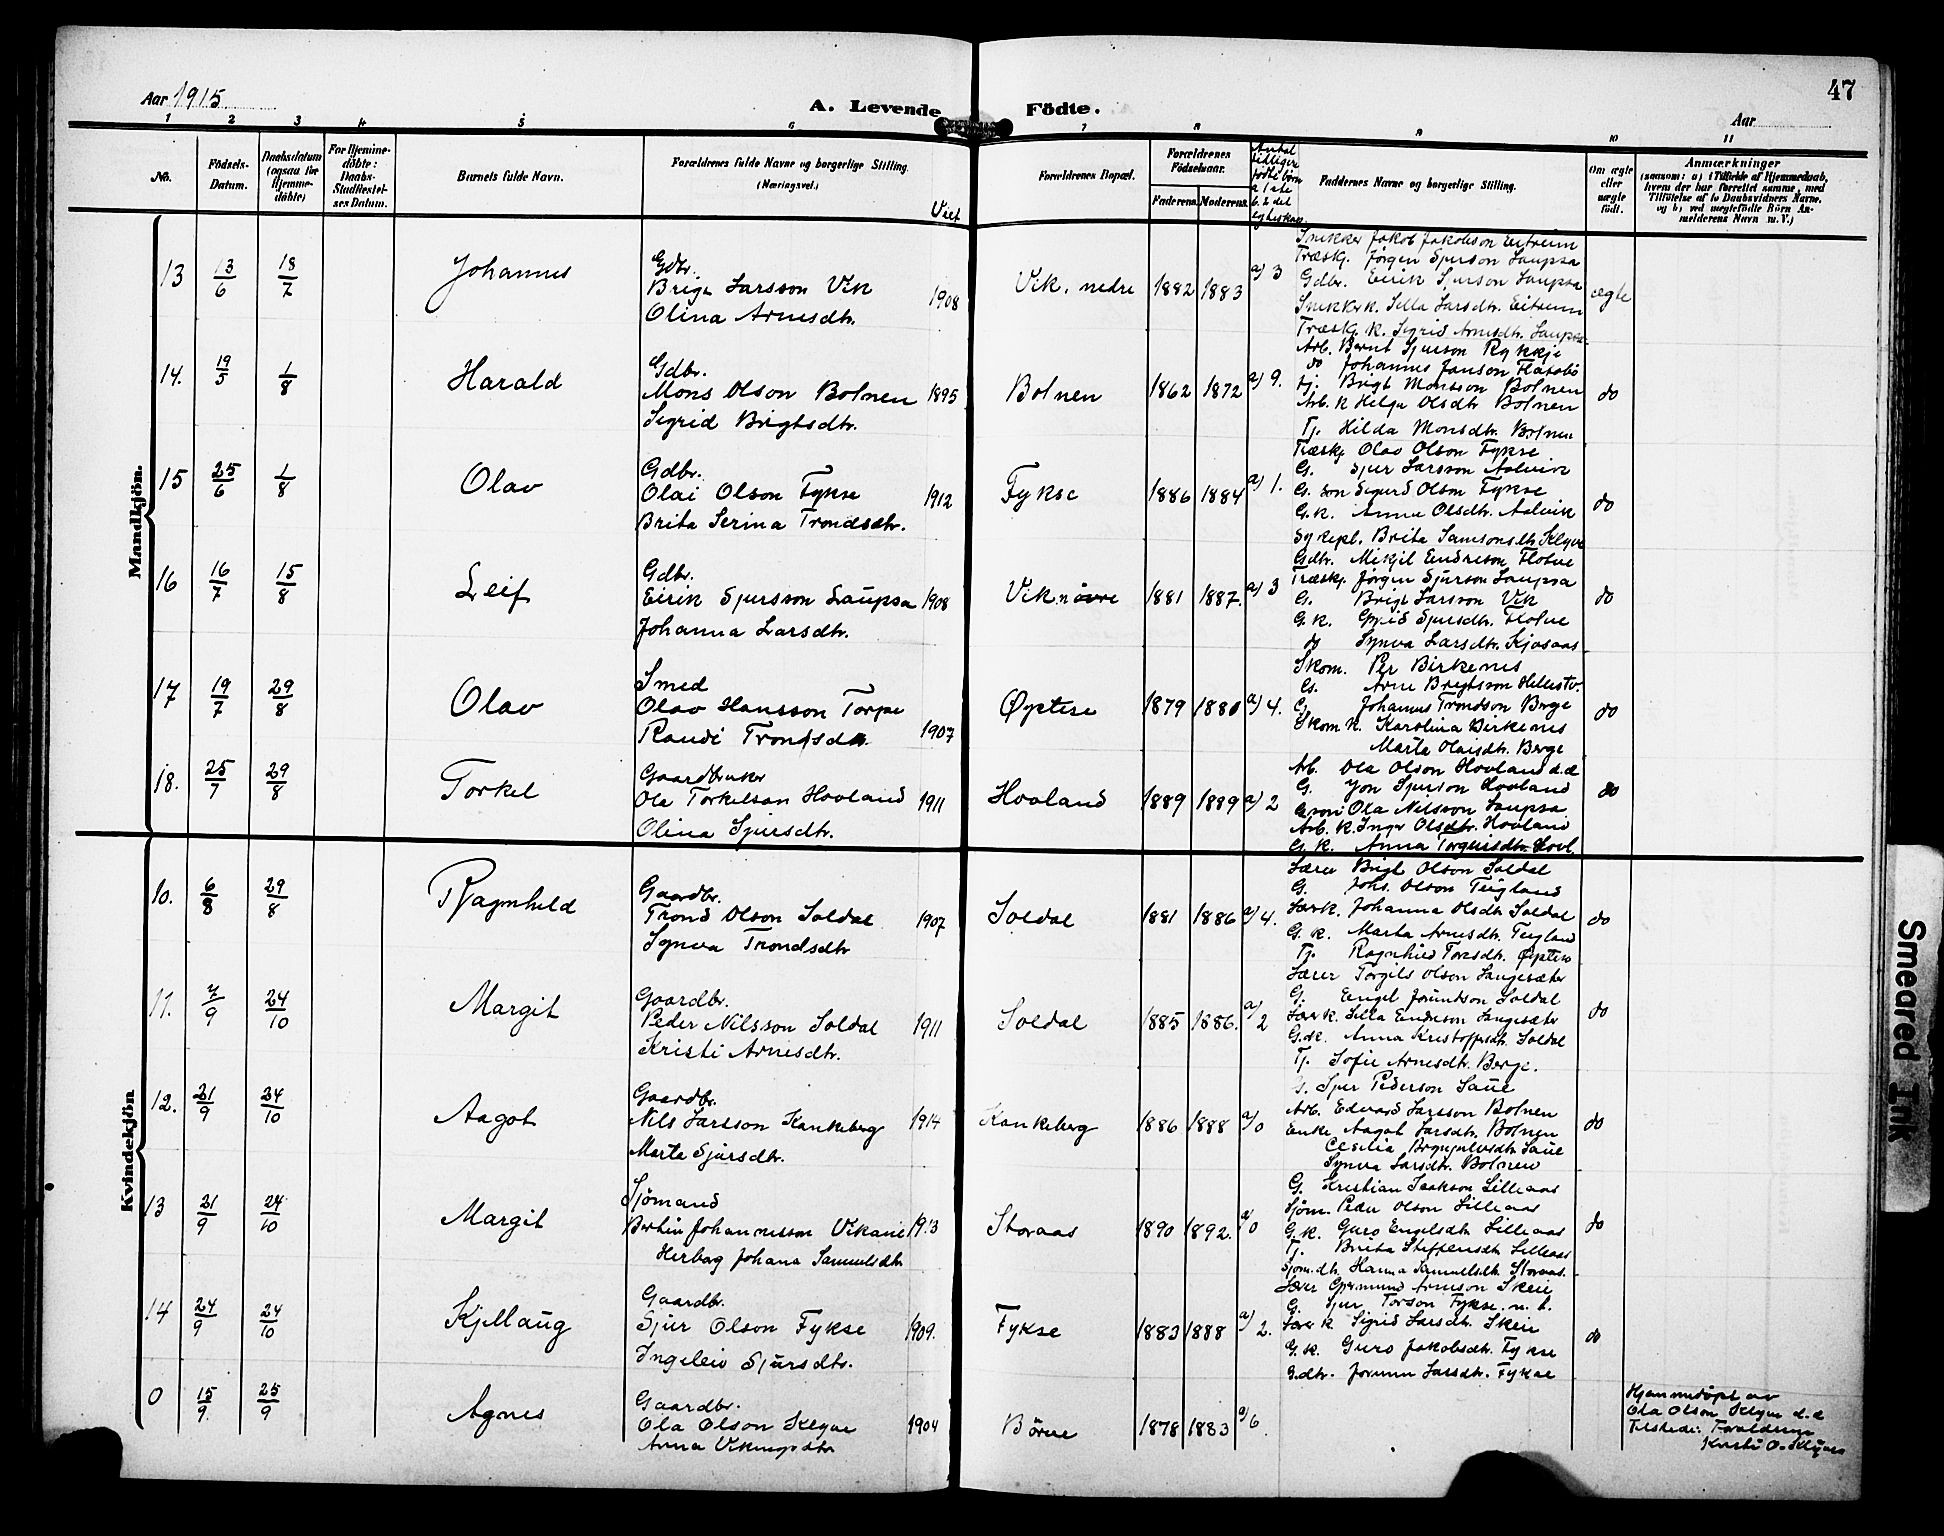 47
Aar 1915
A. Levende Födte.
Aar
1 2 3 4 5 6 7 8 9 10 11
No.
Födsels-Datum.
Daabsdatum (ogsaa for Hjemme-döbte)
For Hjemme-döbte: Daabs-Stadfæstel-ses Datum.
Barnets fulde Navn.
Forældrenes fulde Navne og borgerlige Stilling. (Næringsvei.)
Viet
Forældrenes Bopæl.
Forældrenes Födselsaar.
Faderens. Moderens.
Antal tidligere födte börn
Faddernes Navne og borgerlige Stilling.
Om ægte eller uægte födt.
Anmærkninger
(saasom: a) i Tilfælde af Hjemmedaab, hvem der har forrettet samme, med Tilföielse af to Daabsvidners Navne, og b) ved uægtefödte Börn An-melderens Navn m. V.)
Mandkjön.
13 13/6 18/7 Johannes
Gdbr.
Brigt Larsson Vik 1908
Olina Arnesdtr.
Vik, nedre 1882 1883 a) 3
Snikker Jakob Jakobson Eitreim
Træskj. Jørgen Sjurson Laupsa
Gdbr. Eirik Sjurson Laupsa
Snikkerk. Silla Larsdtr. Eitreim
Træskj. k. Sigrid Arnesdtr. Laupsa
ægte
14. 19/5 1/8 Harald
Gdbr.
Mons Olson Botnen 1895
Sigrid Brigtsdtr.
Botnen 1862 1872 a) 9.
Arb. Bernt Sjurson Rykkje
do Johannes Janson
Tj. Brigt Monsson Botnen
Arb. k Helga Olsdtr Botnen
Tj. Hilda Monsdtr. Botnen
do
15 25/6 1/8 Olav
Gdbr.
Olai Olson Fykse 1912
Brita Serina Trondsdtr.
Fykse 1886 1884 a) 1.
Træskj Olav Olson Fykse
G. Sjur Larsson Aalvik
G. son Sigurd Olson Fykse
G.k. Anna Olsdtr. Aalvik
Sykepl. Brita Samsonsdtr Klyve
do
16 16/7 15/8 Leif
Gdbr.
Eirik Sjursson Laupsa 1908
Johanna Larsdtr.
Vik nøvre 1881 1887. a) 3
Gdbr. Mikjil Eindreson Flotve
Træskj. Jørgen Sjurson Laupsa
G. Brigt Larsson Vik
G. k. Gyrid Sjursdtr. Flotve
do Synva Larsdtr. Kjosaas
do
17 19/7 29/8 Olav
Smed
Olav Hansson Torpe
Randi Trondsdtr. 1907
Øystese 1879 1880 a) 4.
Skom. Per Birkenes
G. Arne Brigtsson Hellestv.
G. Johannes Trondson Berge
Skom k. Karolina Birkenes
Marta Olaisdtr. Berge
do
18. 25/7 29/8 Torkel
Gaardbruker
Ola Torkelson Hovland 1911
Olina Sjursdtr.
Hovland 1889 1889 a) 2
Arb. Ola Olson Hovland d.e
G. Jon Sjurson Hovland
G son Ola Nilsson Laupsa
Arb. k. Inger Olsdtr. Hovland
G. k. Anna Torgeirsdtr. Hovl.
do
Kvindekjön
10. 6/8 29/8 Ragnhild
Gaardbr.
Trond Olson Soldal 1907
Synva Trondsdtr
Soldal 1881 1886 a) 4.
Lærer Brigt Olson Soldal
G. Johs. Olson Teigland
Lærk. Johanna Olsdtr Soldal
G. k. Marta Arnesdtr. Teigland
Tj. Ragnhild Torsdtr. Øystese
do
11. 7/9 24/10 Margit
Gaardbr.
Peder Nilsson Soldal 1911
Kristi Arnesdtr.
Soldal 1885 1886. a) 2
Lærer Torgils Olson Langesæter
G. Engel Jörundson Soldal
Lærk. Silla Eindreson Langesæter
G.k. Anna Kristoffersdtr. Soldal
Tj. Sofie Arnesdtr. Berge.
do
12. 21/9 24/10 Aagot
Gaardbr.
Nils Larsson Kankeberg 1914
Marta Sjursdtr.
Kankeberg 1886 1888 a) 0
G. Sjur Pederson Saue
Arb. Edvard Larsson Botnen
Enke Aagot Larsdtr. Botnen
Cecilia Brynjulvsdtr Saue
Synva Larsdtr. Botnen
do
13 21/9 24/10 Margit
Sjömand
Bertin Johannesson Vikane 1913
Herborg Johana Samuelsdtr
Storaas 1890 1892. a) 0
G. Kristian Isakson Lilleaas
Sjöm. Peder Olson Lilleaas
G.k. Guro Engelsdtr Lilleaas
Tj. Brita Steffensdtr Lilleaas
Sjöm.dtr. Hanna Samuelsdtr. Storaas.
do
14 24/9 24/10 Kjellaug
Gaardbr.
Sjur Olson Fykse 1909.
Ingeleiv Sjursdtr.
Fykse 1883 1888 a) 2.
Lærer Germund Arneson Skeie
G. Sjur Torson Fykse, n. t.
Lærer k Sigrid Larsdtr. Skeie
G.k. Guro Jakobsdtr. Fykse
G.dtr. Jorunn Larsdtr. Fykse
do
0 15/9. 25/9 Agnes
Gaardbr.
Ola Olson Klyve 1904
Anna Vikingsdtr
Börve 1878 1883 a) 6.
Hjemmedöpt av
Ola Olson Klyve d.e
Tilstede: Forældrene
Kristi O. Klyve
Smeared Ink